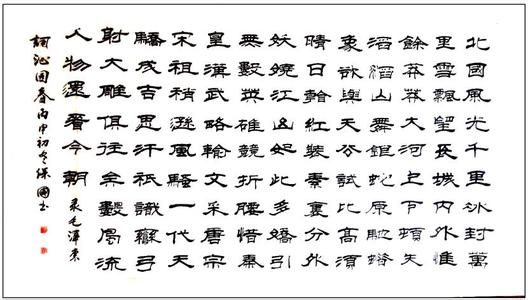 北國風光千里冰封萬
里雪飄望長城內外惟
餘莽莽大河上下頓失
滔滔山舞銀蛇原馳蠟
象欲與天公試比高須
晴日看紅裝素裹分外
妖嬈江山如此多嬌引
無數英雄競折腰惜秦
皇漢武略輸文采唐宗
宋祖稍遜風騷一代天
驕成吉思汗祇識彎弓
射大雕俱往矣數風流
人物還看今朝 录毛澤东
詞沁园春丙申初冬保國书